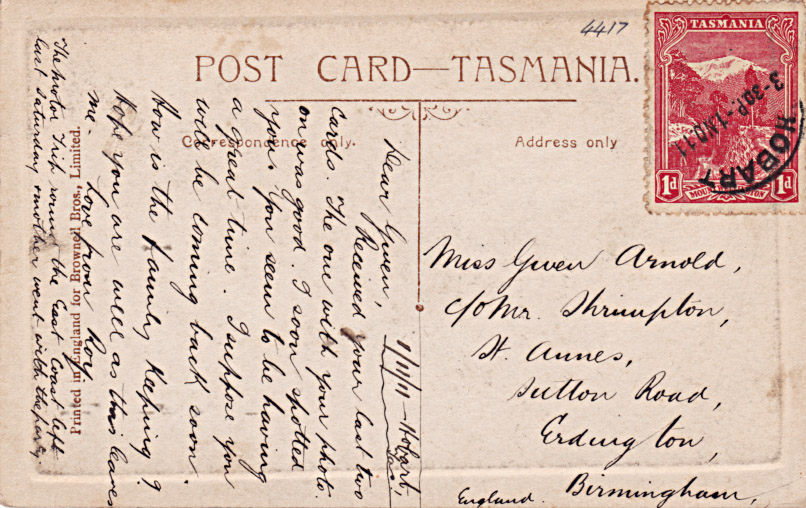 4417
POST CARD—TASMANIA.
Correspondence only.
Address only
TASMANIA
1d
1d
MOUNT WELLINGTON
HOBART
3-30P-1NO11
1/11/11 – Hobart,
Dear Gwen,
Received your last two
cards. The one with your photo.
on was good. I soon spotted
you. You seem to be having
a great time. I suppose you
will be coming back soon.
How is the family keeping?
Hope you are well as this leaves
me. Love from Roy.
The motor trip round the East Coast left
last Saturday & mother went with the party.
Printed in England for Browned Bros., Limited.
Miss Gwen Arnold,
c/o Mr. Shrimpton,
St. Annes,
Sutton Road,
Erdington,
Birmingham,
England.